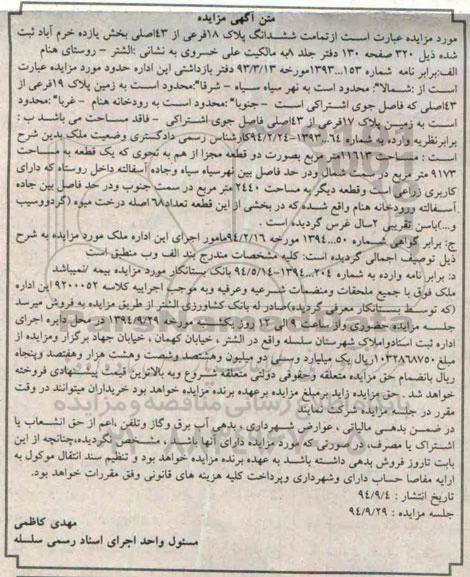 متن آگهی مزایده
مورد مزایده عبارت است ازتمامت ششدانگ پلاک ۱۸فرعی از ۴۳اصلی بخش یازده خرم آباد ثبت
شده ذیل ۳۲۰ صفحه ۱۳۰ دفتر جلد ۸به مالکیت علی خسروی به نشانی :الشتر - روستای هنام
الف:برابر نامه شماره ۱۵۳...۱۳۹۳مورخه ۹۳/۳/۱۳ دفتر بازداشتی این اداره حدود مورد مزایده عبارت
است از :شمالا": محدود است به نهر سیاه سیاه - شرقا":محدود است به زمین پلاک ۱۹فرعی از
۴۳اصلی که فاصل جوی اشتراکی است - جنوبا" :محدود است به رودخانه هنام - غربا" :محدود
است به زمین پلاک ۱۷فرعی از ۴۳اصلی فاصل جوی اشتراکی - فاقد مساحت می باشد ب :
برابرنظریه وارده به شماره ۶۴...۱۳۹۳-۹۴/۲/۲۴کارشناس رسمی دادگستری وضعیت ملک بدین شرح
است : مساحت ۱۱۶۱۳متر مربع بصورت دو قطعه مجزا از هم به نحوی که یک قطعه به مساحت
۹۱۷۳ متر مربع در سمت شمال ودر حد فاصل بین نهرسیاه سیاه وجاده آسفالته داخل روستاه که دارای
کاربری زراعی است وقطعه دیگر به مساحت ۲۴۴۰ متر مربع در سمت جنوب ودر حد فاصل بین جاده
آسفالته ورودخانه هنام واقع شده که در بخشی از این قطعه تعداد۶۸ اصله درخت میوه (گردووسیب
و...)باسن تقریبی ۲سال غرس گردیده است .
ج: برابر گواهی شماره ۵۰...۱۳۹۴ مورخه ۹۴/۲/۱۶مامور اجرای این اداره ملک مورد مزایده به شرح
ذیل توصیف اجمالی گردیده است: کلیه مشخصات مندرج بند الف وب منطبق است
د: برابر نامه وارده به شماره ۲۰۴...۱۳۹۴-۹۴/۵/۱۴ بانک بستانکار مورد مزایده بیمه /نمیباشد
ملک فوق با جمیع ملحقات ومنضمات شرعیه وعرفیه وبه موجب اجراییه کلاسه ۹۲۰۰۰۵۲ این اداره
(که توسط بستانکار معرفی گردیده)صادر له بانک کشاورزی الشتر از طریق مزایده به فروش میرسد
جلسه مزایده حضوری واز ساعت ۹ الی ۱۲ روز یکشنبه مورخه ۱۳۹۴/۹/۲۹ در محل دایره اجرای
اداره ثبت اسنادواملاک شهرستان سلسله واقع در الشتر ، خیابان کهمان ، خیابان جهاد برگزار ومزایده از
مبلغ ۱۰۳۲۸۶۸۷۵۰ریال یک میلیارد وسی دو میلیون وهشتصد وشصت وهشت هزار وهفتصد وپنجاه
ریال بانضمام حق مزایده متعلقه وحقوقی دولتی متعلقه شروع وبه بالاترین قیمت پیشنهادی فروخته
خواهد شد . حق مزایده زاید برمبلغ مزایده برعهده برنده مزایده خواهد بود خریداران میتوانند در وقت
مقرر در جلسه مزایده شرکت نمایند
در ضمن بدهی مالیاتی ، عوارض شهرداری ، بدهی آب برق وگاز وتلفن ،اعم از حق انشعاب یا
اشتراک یا مصرف، در صورتی که مورد مزایده دارای آنها باشد ، مشخص نگردیده،چنانچه از این
بابت تاروز فروش بدهی داشته باشد به عهده برنده مزایده خواهد بود و تنظیم سند انتقال موکول به
ارایه مفاصا حساب دارای وشهرداری وپرداخت کلیه هزینه های قانونی وفق مقررات خواهد بود.
تاریخ انتشار : ۹۴/۹/۴
جلسه مزایده : ۹۴/۹/۲۹
مهدی کاظمی
مسئول واحد اجرای اسناد رسمی سلسله